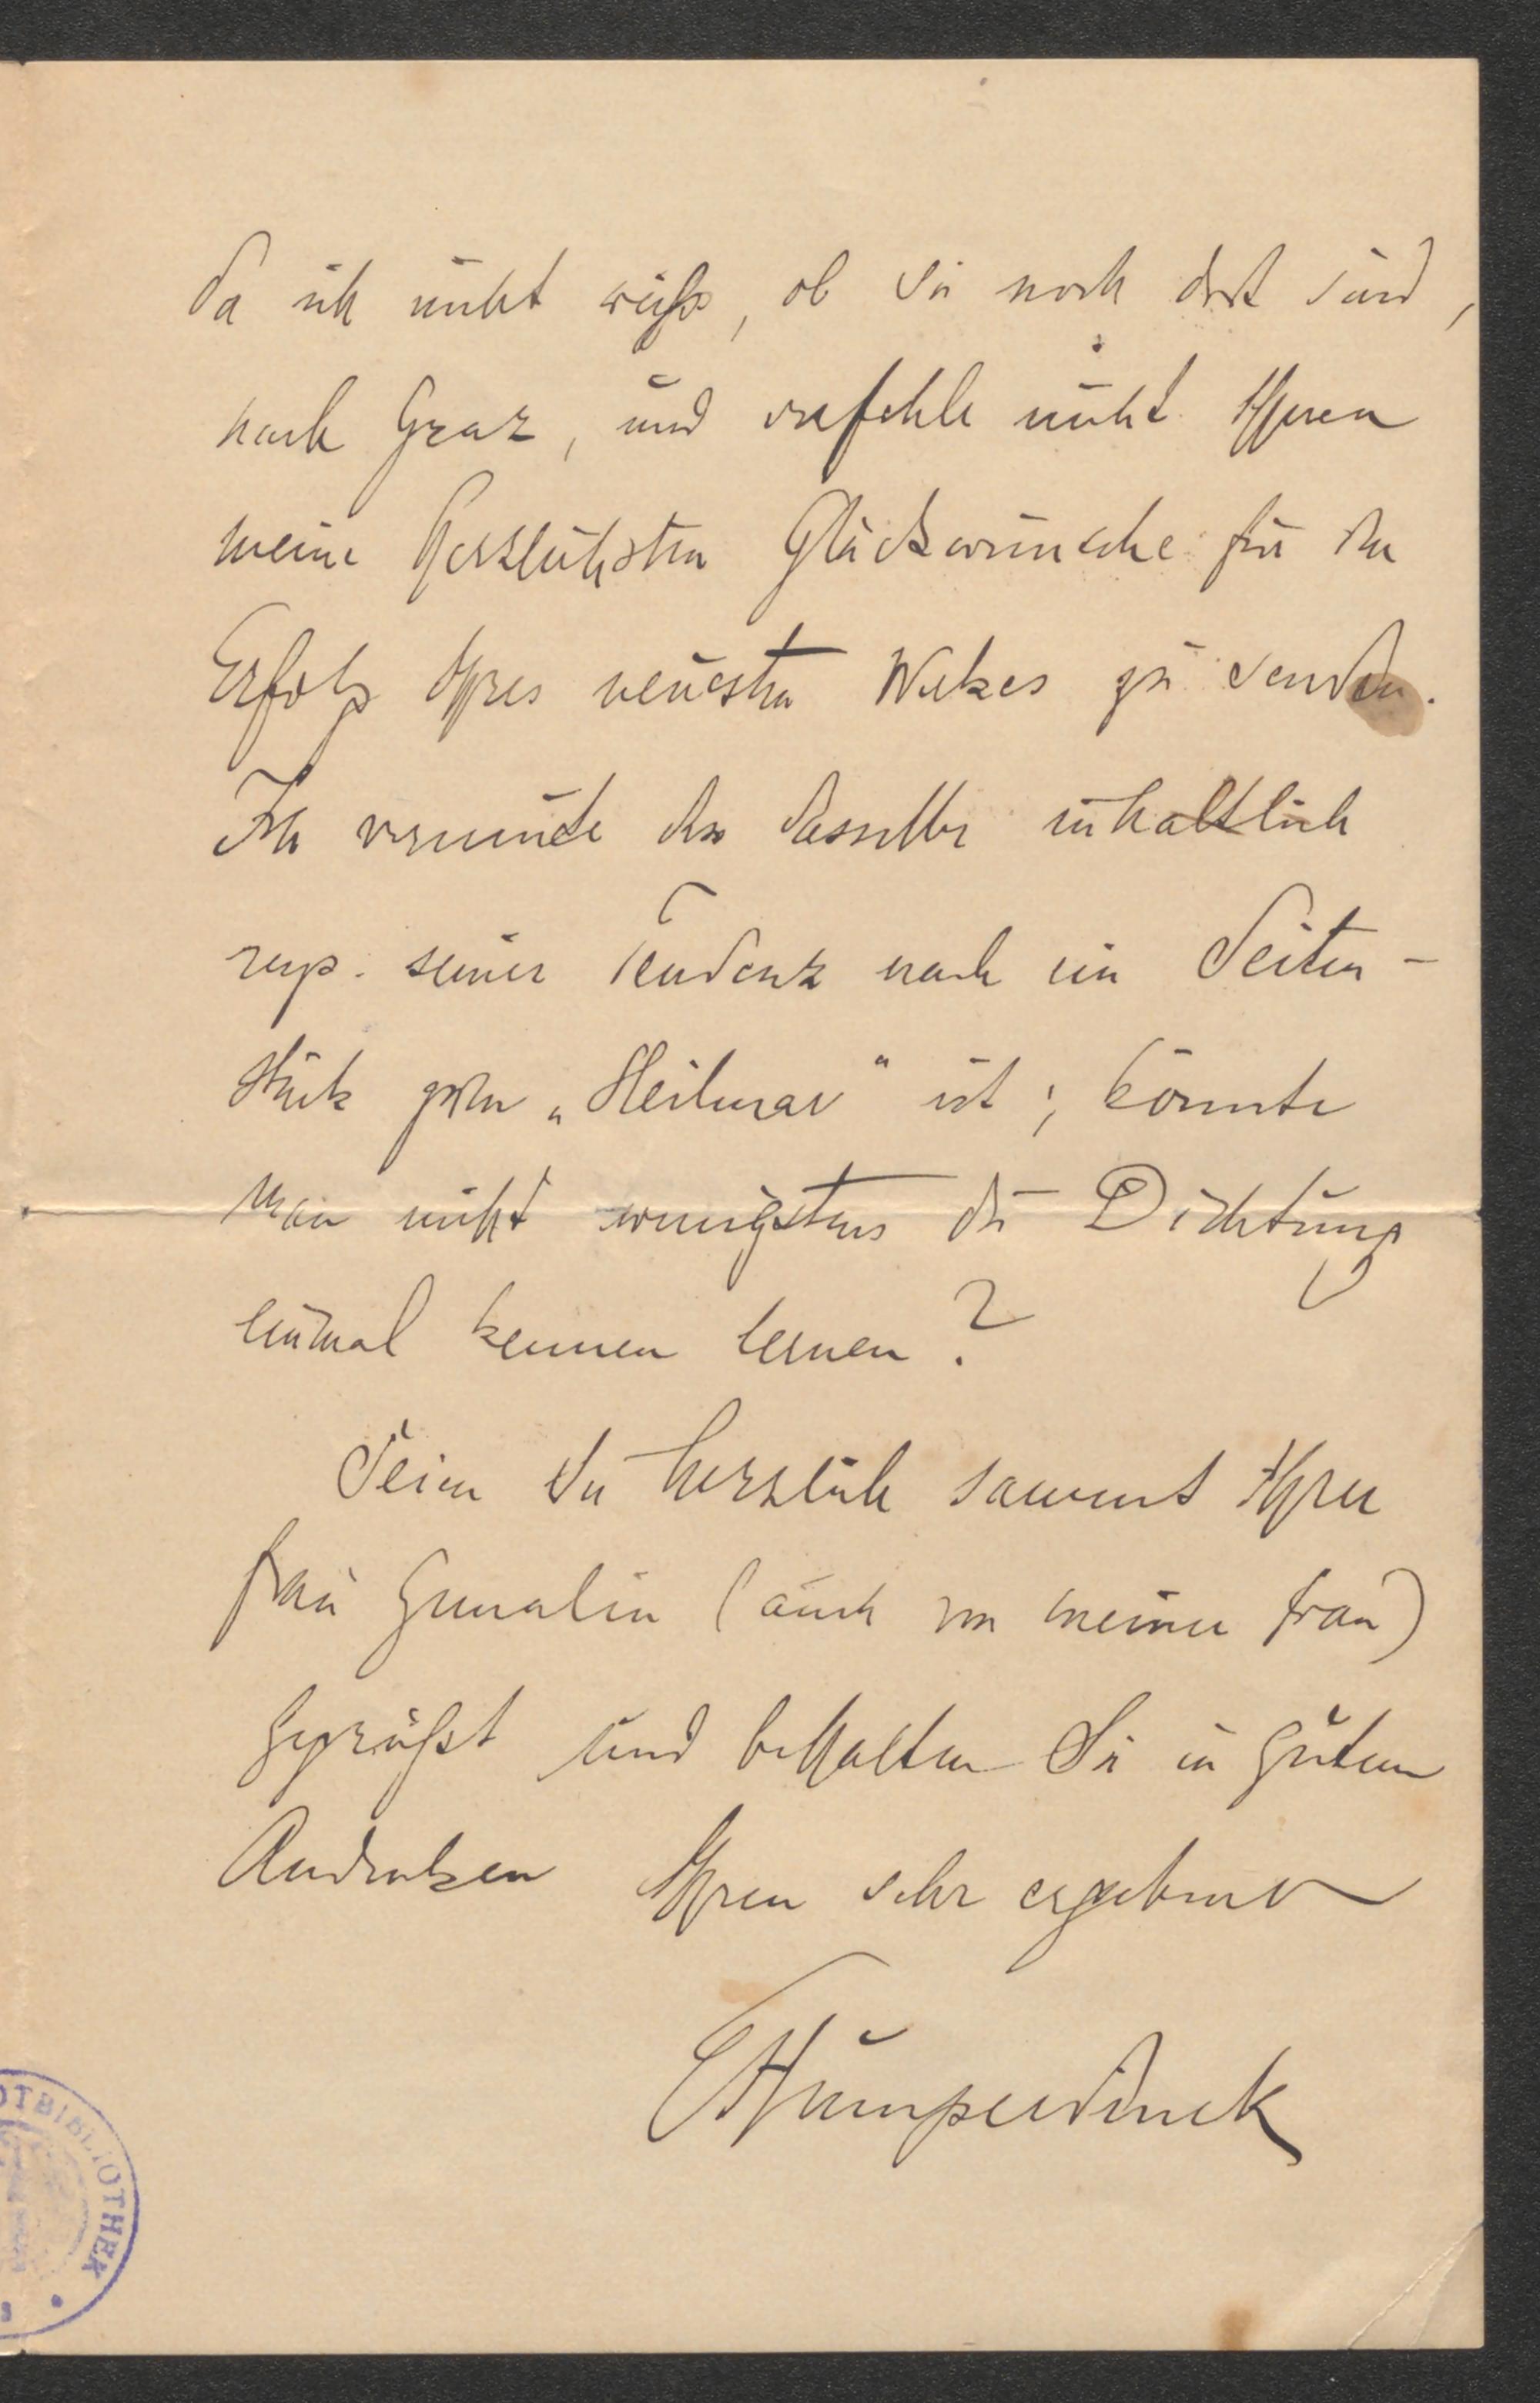 da ich nicht weiß, ob Sie noch dort sind,
nach Graz, und verfehle nicht Ihnen
meine herzlichsten Glückwünsche für den
Erfolg Ihres neuesten Werkes zu senden.
Ich vermute dass dasselbe inhaltlich
resp. seiner Tendenz nach ein Seiten-
stück zum „Heilmar" ist; könnte
man nicht wenigstens die Dichtung
einmal kennen lernen?
Seien Sie herzlich sammt Ihrer
Frau Gemalin (auch von meiner Frau)
gegrüßt und behalten Sie in gutem
Andenken Ihren sehr ergebenen
EHumperdinck
OTBIBLIOTHEK